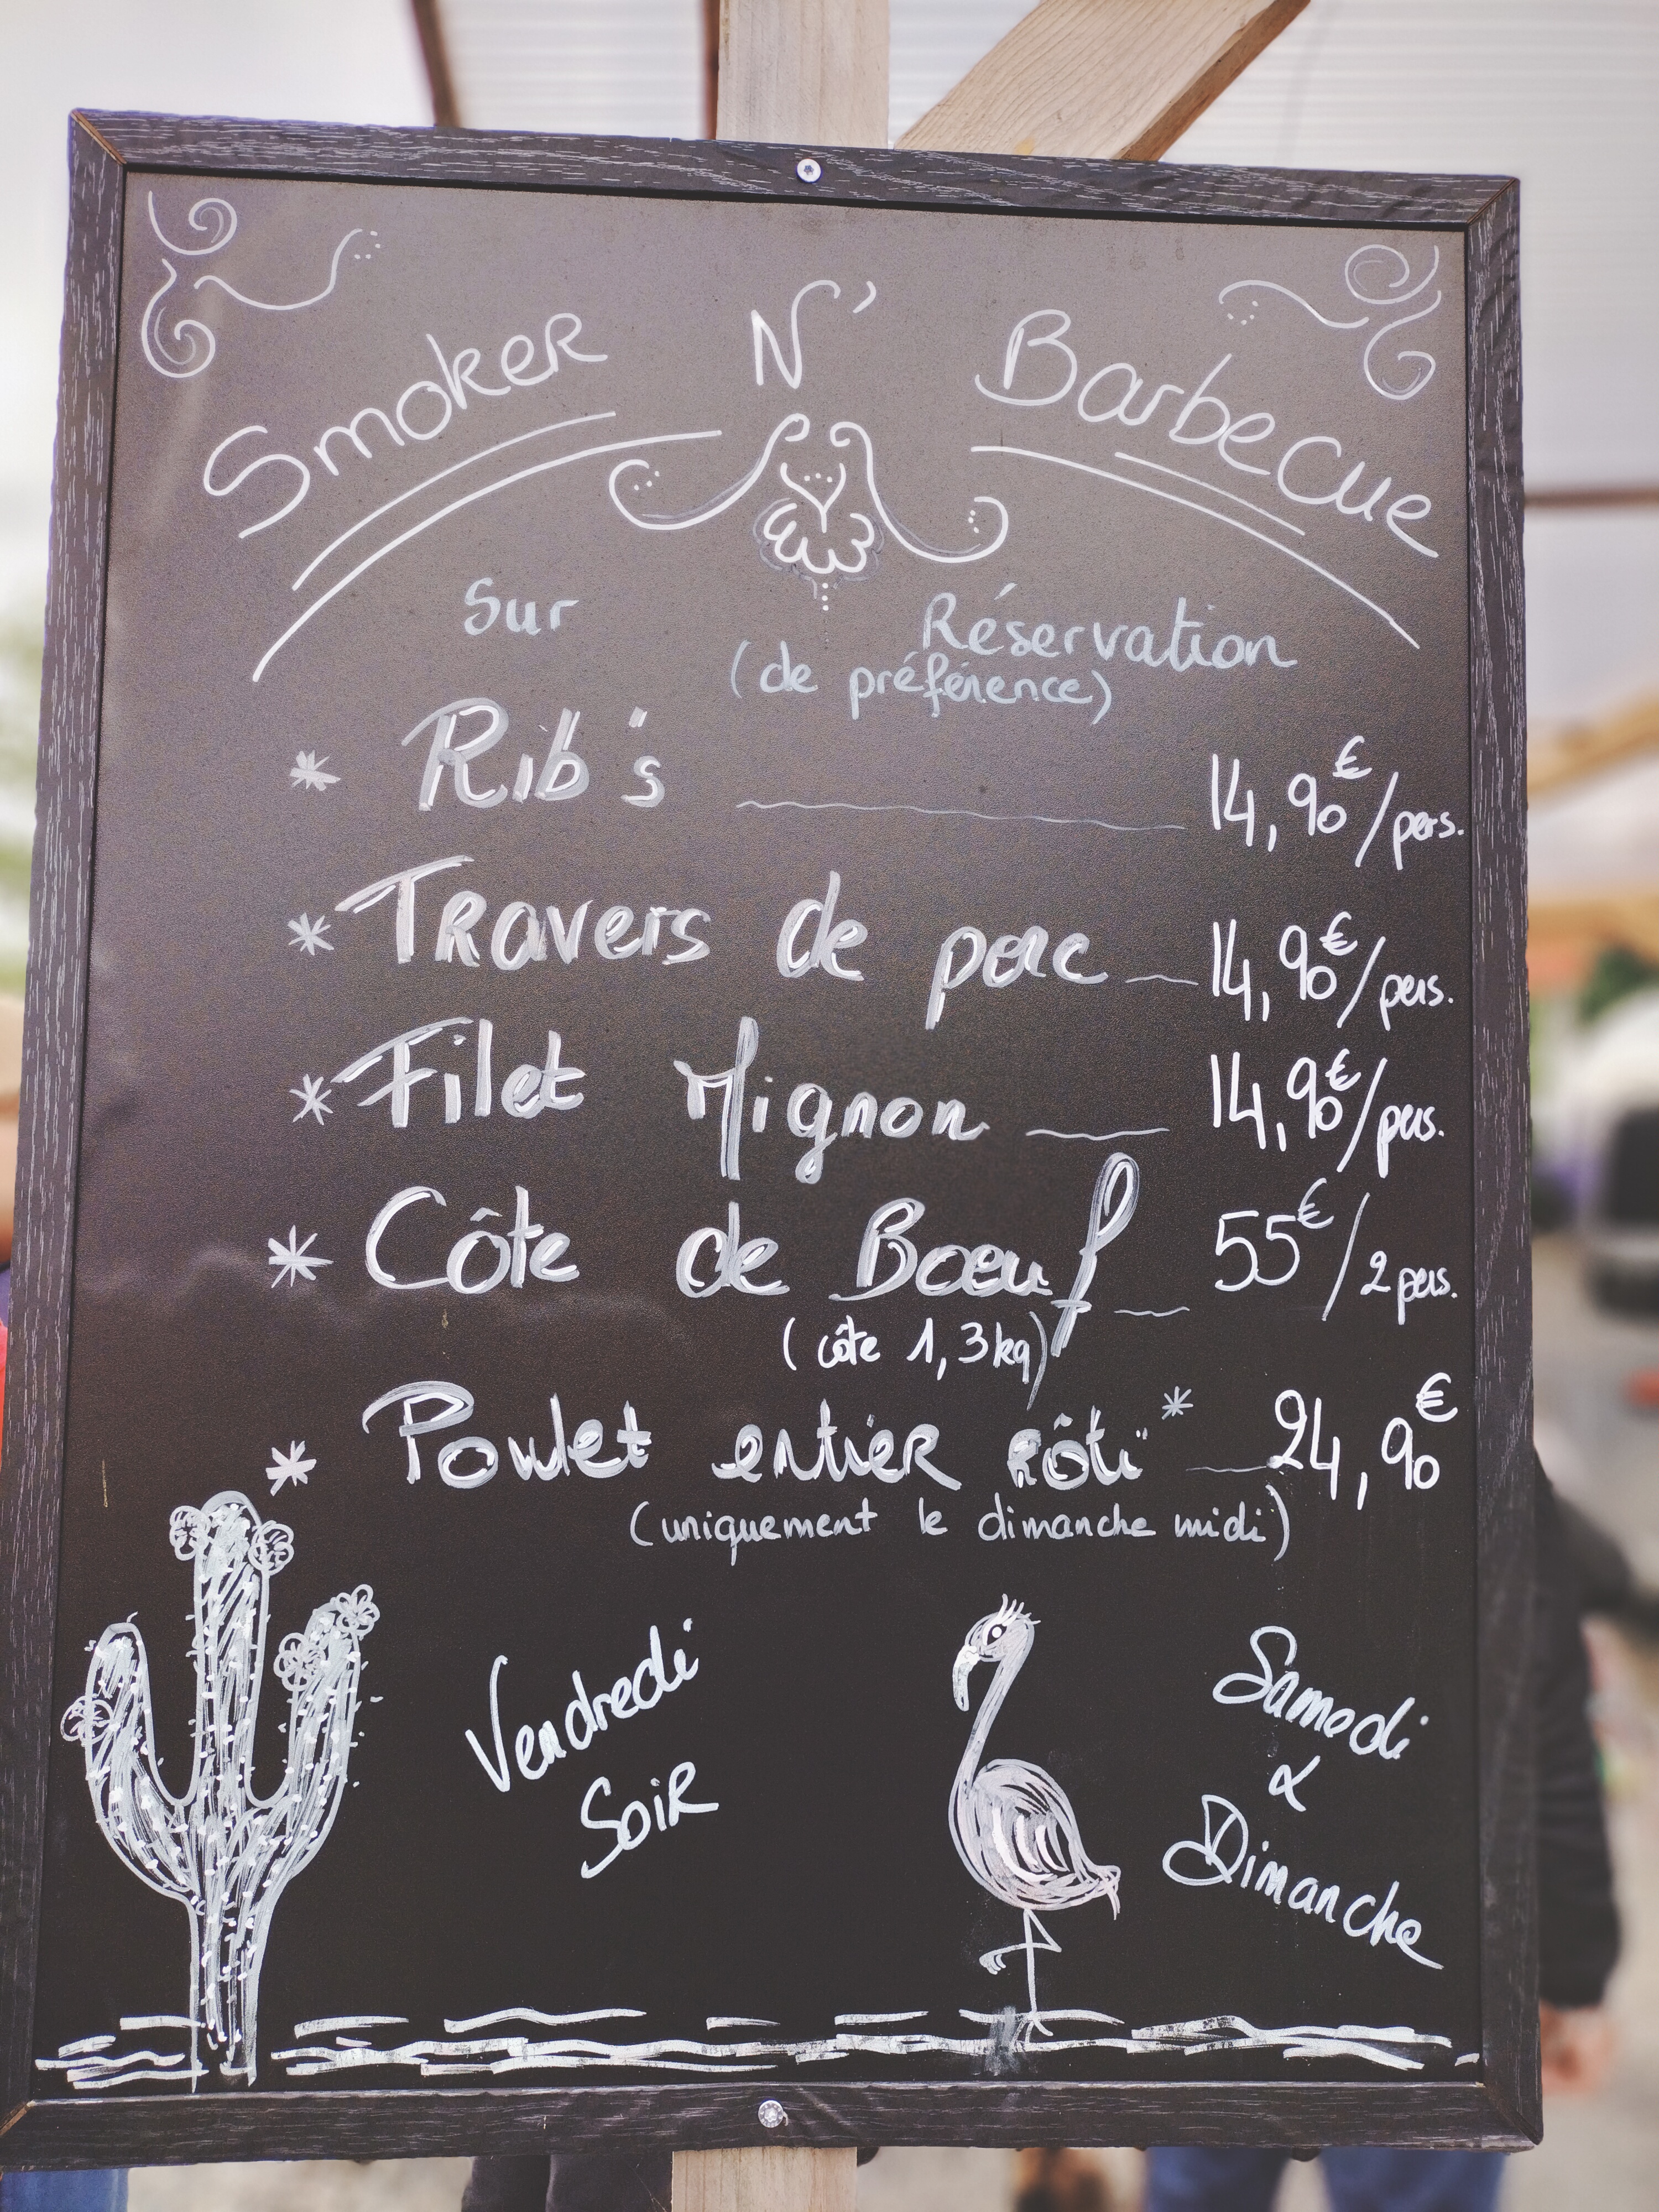 Smoker N' Barbecue
Sur Réservation
(de préférence)
* Rib's 14,90€/pers.
* Travers de porc 14,90€/pers.
* Filet Mignon 14,90€/pers.
* Côte de Boeuf 55€/2 pers.
(côte 1,3kg)
* Poulet entier rôti* 24,90€
(uniquement le dimanche midi)
Vendredi
Soir
Samedi
&
Dimanche